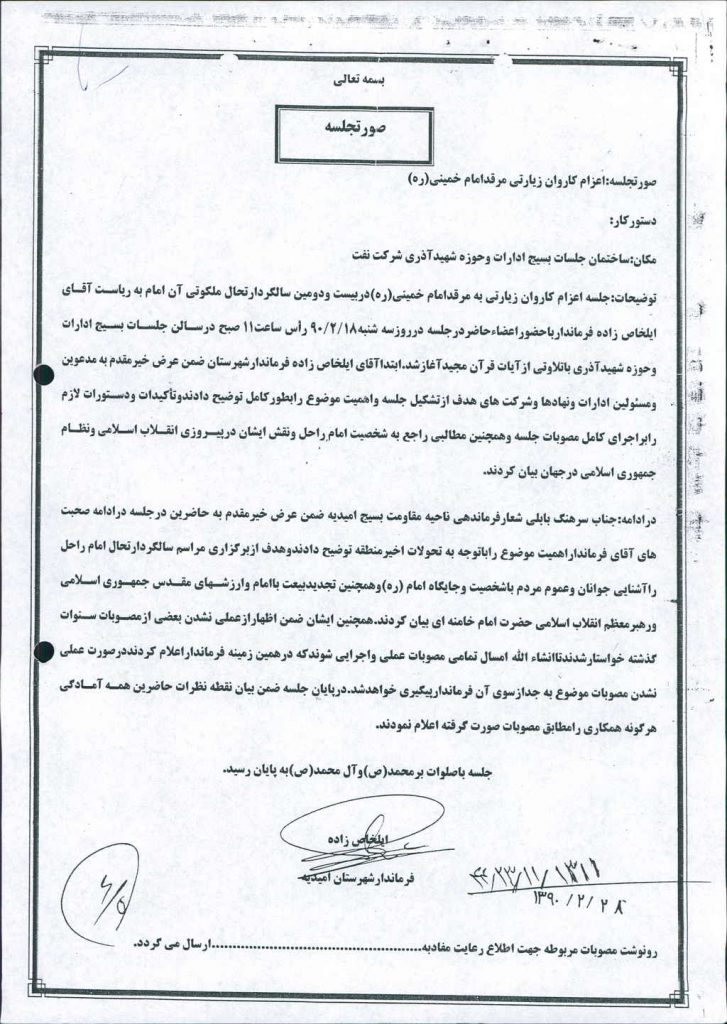 بسمه تعالی
صورتجلسه
صورتجلسه:اعزام کاروان زیارتی مرقدامام خمینی(ره)
دستورکار:
مکان:ساختمان جلسات بسیج ادارات وحوزه شهیدآذری شرکت نفت
توضیحات:جلسه اعزام کاروان زیارتی به مرقدامام خمینی(ره)دربیست ودومین سالگردارتحال ملکوتی آن امام به ریاست آقای
ایلخاص زاده فرماندارباحضوراعضاءحاضردرجلسه درروزسه شنبه ۹۰/۲/۱۸ رأس ساعت۱۱ صبح درسالن جلسات بسیج ادارات
وحوزه شهیدآذری باتلاوتی ازآیات قرآن مجیدآغازشد.ابتداآقای ایلخاص زاده فرماندارشهرستان ضمن عرض خیرمقدم به مدعوین
ومسئولین ادارات ونهادها وشرکت های هدف ازتشکیل جلسه واهمیت موضوع رابطورکامل توضیح دادندوتأکیدات ودستورات لازم
رابراجرای کامل مصوبات جلسه وهمچنین مطالبی راجع به شخصیت امام راحل ونقش ایشان درپیروزی انقلاب اسلامی ونظام
جمهوری اسلامی درجهان بیان کردند.
درادامه:جناب سرهنگ بابلی شعارفرماندهی ناحیه مقاومت بسیج امیدیه ضمن عرض خیرمقدم به حاضرین درجلسه درادامه صحبت
های آقای فرمانداراهمیت موضوع راباتوجه به تحولات اخیرمنطقه توضیح دادندوهدف ازبرگزاری مراسم سالگردارتحال امام راحل
راآشنایی جوانان وعموم مردم باشخصیت وجایگاه امام (ره)وهمچنین تجدیدبیعت باامام وارزشهای مقدس جمهوری اسلامی
ورهبرمعظم انقلاب اسلامی حضرت امام خامنه ای بیان کردند.همچنین ایشان ضمن اظهارازعملی نشدن بعضی ازمصوبات سنوات
گذشته خواستارشدندتاانشاء الله امسال تمامی مصوبات عملی واجرایی شوندکه درهمین زمینه فرمانداراعلام کردنددرصورت عملی
نشدن مصوبات موضوع به جدازسوی آن فرماندارپیگیری خواهدشد.درپایان جلسه ضمن بیان نقطه نظرات حاضرین همه آمادگی
هرگونه همکاری رامطابق مصوبات صورت گرفته اعلام نمودند.
جلسه باصلوات برمحمد(ص)وآل محمد(ص)به پایان رسید.
ایلخاص زاده
فرماندارشهرستان امیدیه
۱۳۹۰/۲/۲۸
رونوشت مصوبات مربوطه جهت اطلاع رعایت مفادبه..................................................ارسال می گردد.